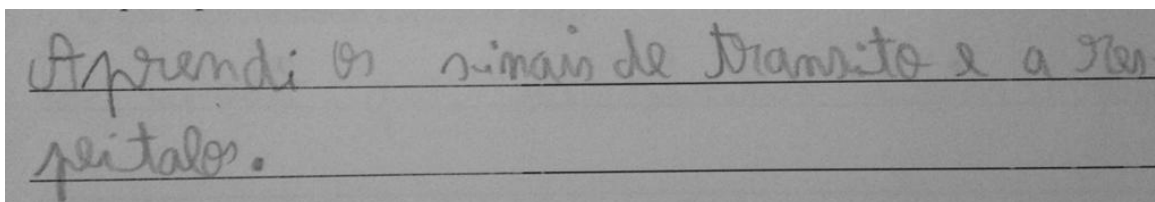 Aprendi os sinais de transito e a res
peitalos.